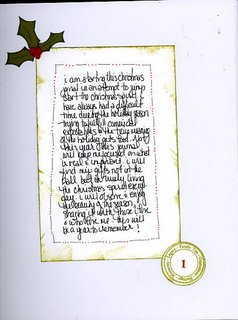 i am starting this christmas
jornal in an attempt to jump
start the christmas spirit. i
have always had a difficult
time during the holiday season
trying to fulfill
the true meaning
of the holiday gets lost. Not
this year. this journal
will keep me focused on what
is real & important. i will
find my gifts not at the
mall but in truly living
the christmas spirit every
day. i will observe & enjoy
the beauty of the season,
sharing it with those i love
& who love me. this will
be a year to remember!
1